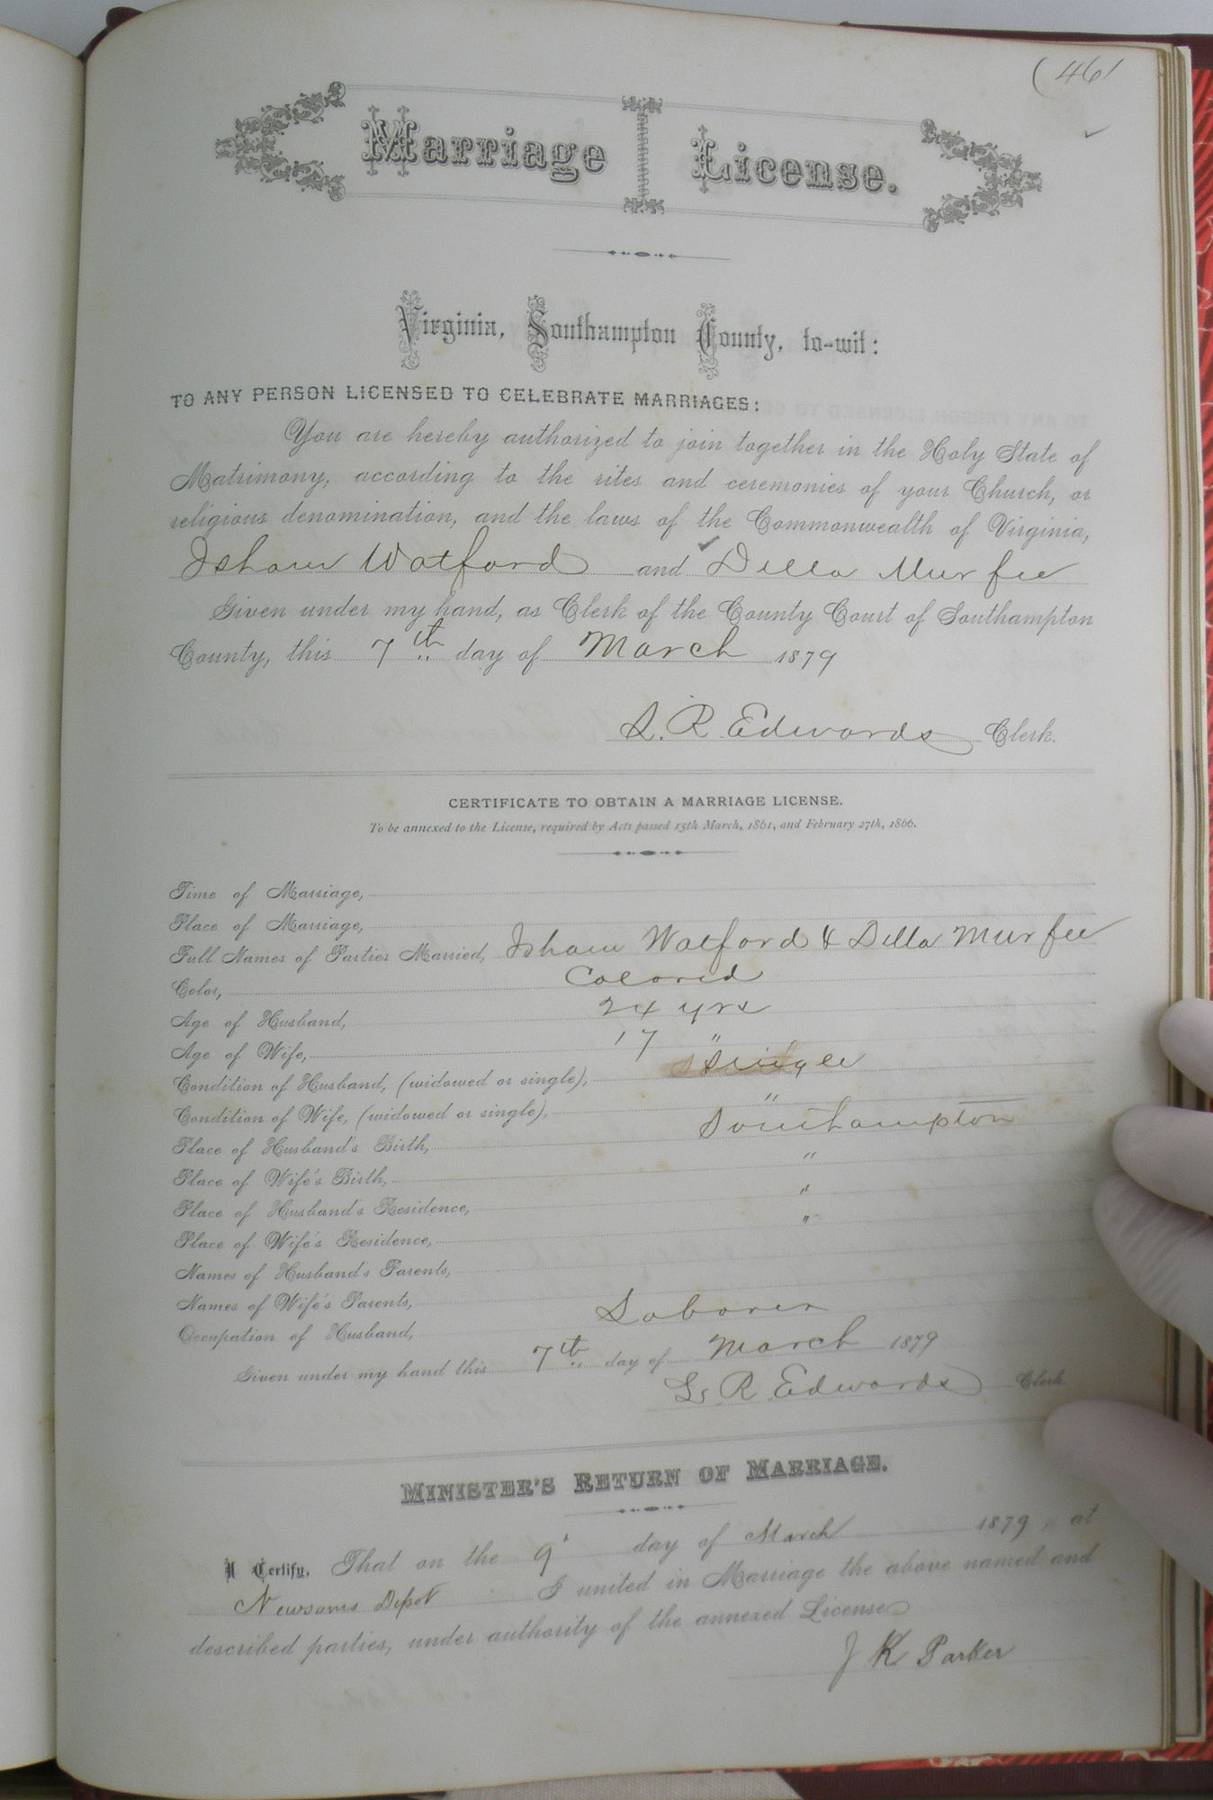 (461
Marriage License.
Virginia, Southampton County, to-wit:
TO ANY PERSON LICENSED TO CELEBRATE MARRIAGES:
You are hereby authorized to join together in the Holy State of
Matrimony, according to the rites and ceremonies of your Church, or
religious denomination, and the laws of the Commonwealth of Virginia,
Isham Watford and Della Murfee
Given under my hand, as Clerk of the County Court of Southampton
County, this 7th day of March 1879
L. R. Edwards Clerk.
CERTIFICATE TO OBTAIN A MARRIAGE LICENSE.
To be annexed to the License, required by Acts passed 15th March, 1861, and February 27th, 1866.
Time of Marriage,
Place of Marriage,
Full Names of Parties Married, Isham Watford & Della Murfee
Color, Colored
Age of Husband, 24 yrs
Age of Wife, 17 "
Condition of Husband, (widowed or single), Single
Condition of Wife, (widowed or single), "
Place of Husband's Birth, Southampton
Place of Wife's Birth, "
Place of Husband's Residence, "
Place of Wife's Residence, "
Names of Husband's Parents,
Names of Wife's Parents,
Occupation of Husband, Laborer
Given under my hand this 7th day of March 1879
L. R Edwards Clerk
MINISTER'S RETURN OF MARRIAGE.
I Certify, That on the 9 day of March 1879, at
Newsoms Depot I united in Marriage the above named and
described parties, under authority of the annexed License
J K Parker